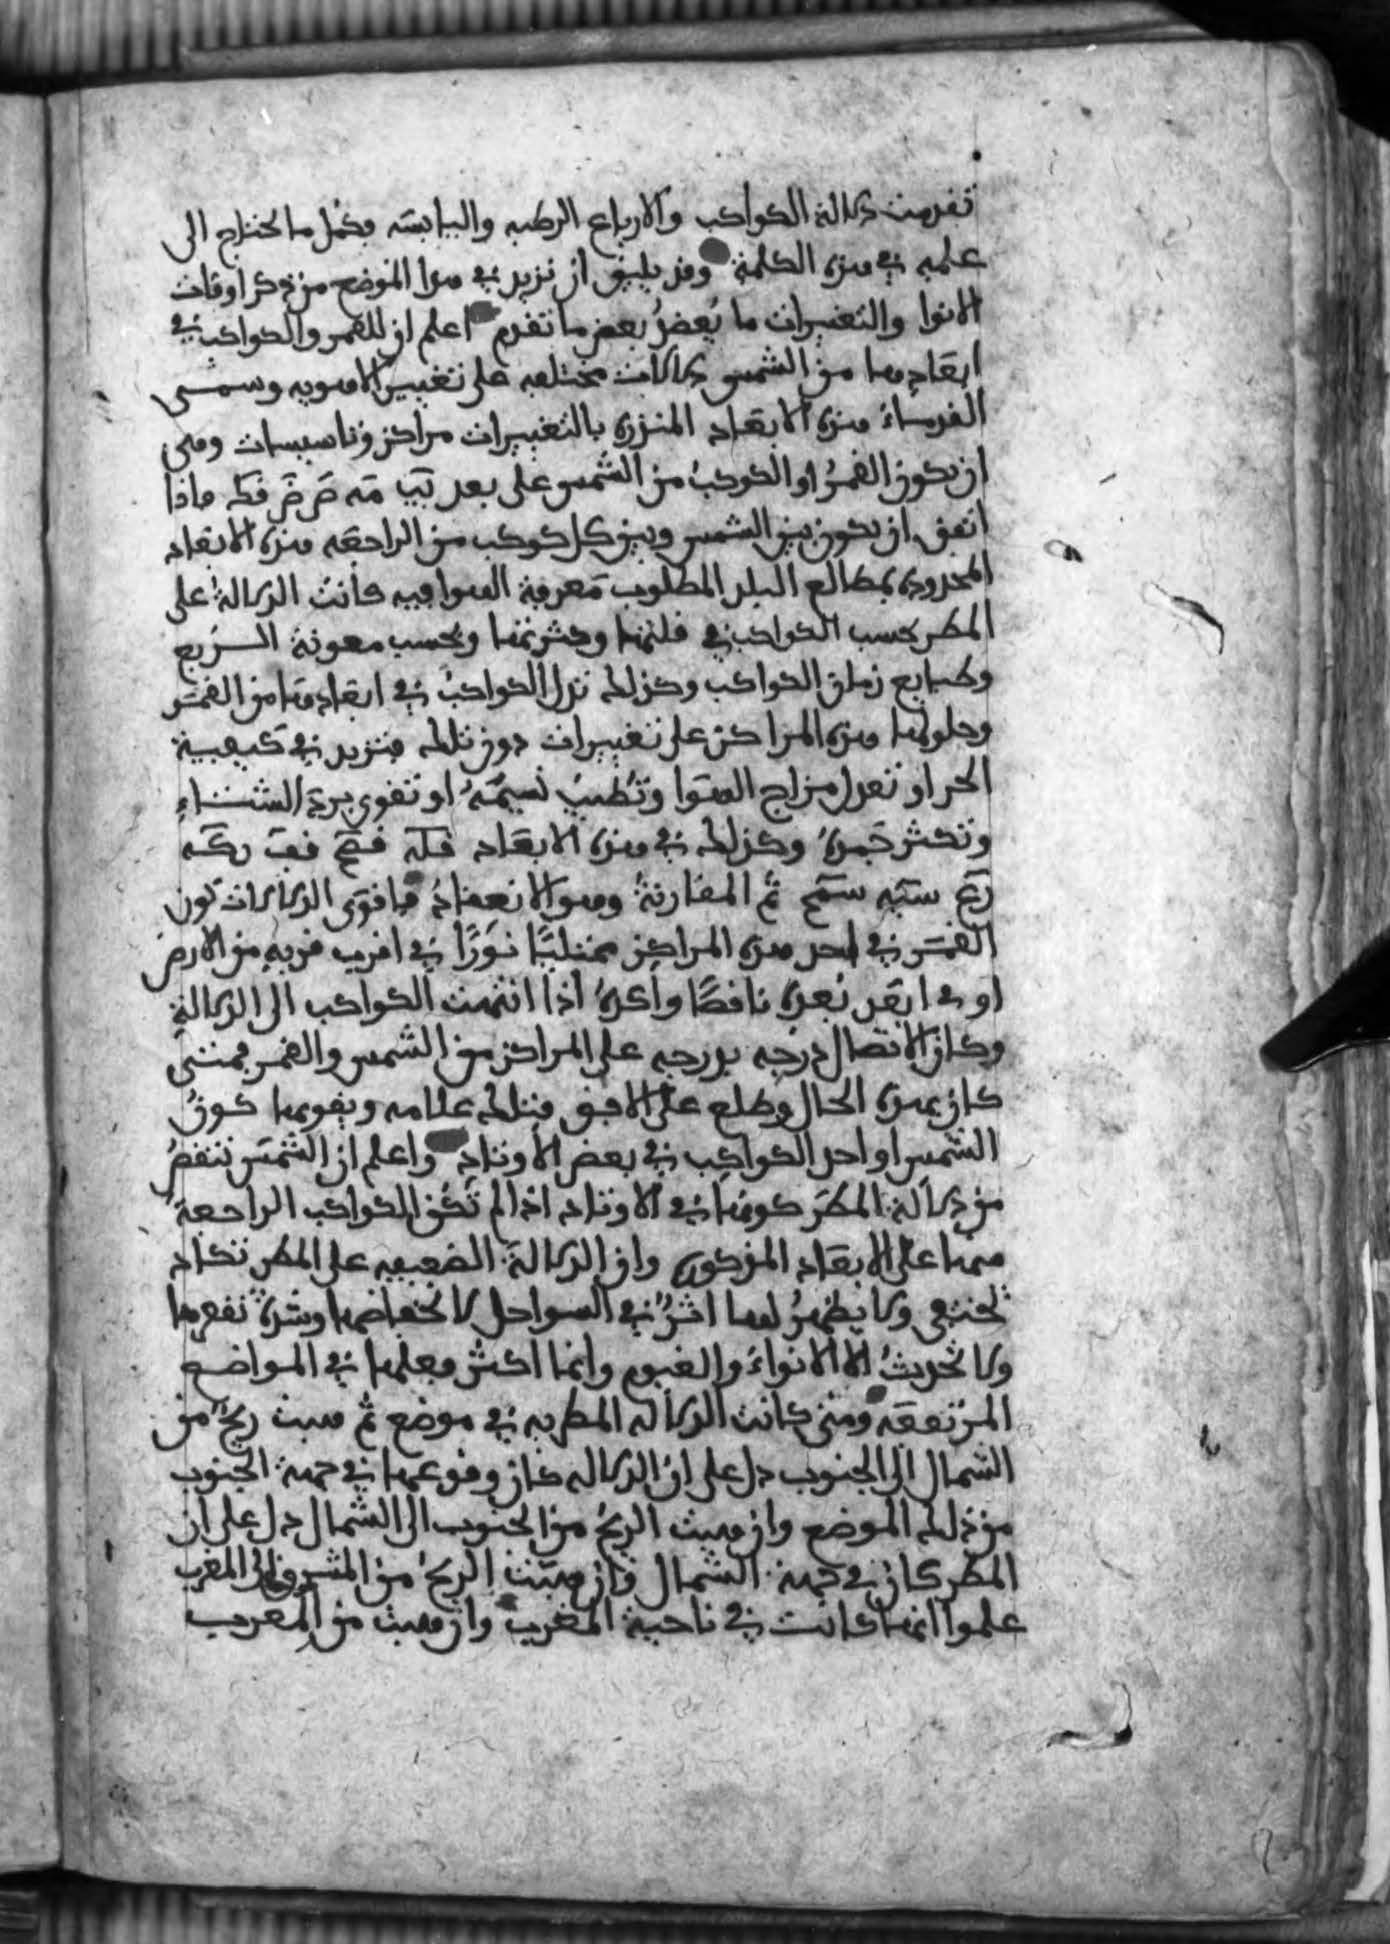 تقدمت دلالة الكواكب والارباع الرطبه واليابسه وكمل ما يحتاج الى
علمه في هذه الكلمة وقد يليق ان نزيد في هذا الموضع من ذكر اوقات
الانوا والتغييرات ما يعضد بعض ما تقدم اعلم ان للقمر والكواكب في
ابعادها من الشمس دلالات مختلفه على تغيير الاهويه وسمى
القدماء هذه الابعاد المنذرة بالتغييرات مراكز وتاسيسات وهى
ان يكون القمر او الكوكب من الشمس على بعد يب مه ص صح قكه فاذا
اتفق ان يكون بين الشمس وبين كل كوكب من الراجعه هذه الابعاد
المحدوده بمطالع البلد المطلوب معرفة الهوا فيه كانت الدلالة على
المطر بحسب الكواكب في قلتها وكثرتها وبحسب معونة الربع
وطبايع تلك الكواكب وكذلك تدل الكواكب في ابعادها من القمر
وحلولها هذه المراكز على تغييرات دون تلك فتزيد في كيفية
الحر او تعدل مزاج الهوا وتطيب نسيمه او تقوى برد الشتاء
وتكثر جمده وكذلك في هذه الابعاد قله قمح
المقارنة وهو الانعقاد فاقوى الدلالات كون
القمر في احد هذه المراكز ممتليًا نورًا في اقرب قربه من الارض
او في ابعد بعده ناقصًا واكده اذا انتهت الكواكب الى الدلالة
وكان الاتصال درجه بدرجه على المراكز من الشمس والقمر فمتى
كان بهذه الحال وطلع على الافق فتلك علامه ويقويها كون
الشمس او احد الكواكب في بعض الاوتاد واعلم ان الشمس تنقص
من دلالة المطر كونها في الاوتاد اذا لم تكن الكواكب الراجعة
منها على الابعاد المذكوره وان الدلالة الضعيفه على المطر تكاد
تختفى ولا يظهر لها اثر في السواحل لانخفاضها وشدة تقعرها
ولا تحدث الا الانواء والغيوم وانما اكثر فعلها في المواضع
المرتفعه ومتى كانت الدلاله المطريه في موضع ثم هبت ريح من
الشمال الى الجنوب دل على ان الدلاله كان وقوعها في جهة الجنوب
من ذلك الموضع وان هبت الريح من الجنوب الى الشمال دل على ان
المطر كان في جهة الشمال وان هبت الريح من المشرق الى المغرب
علموا انها كانت في ناحية المغرب وان هبت من المغرب